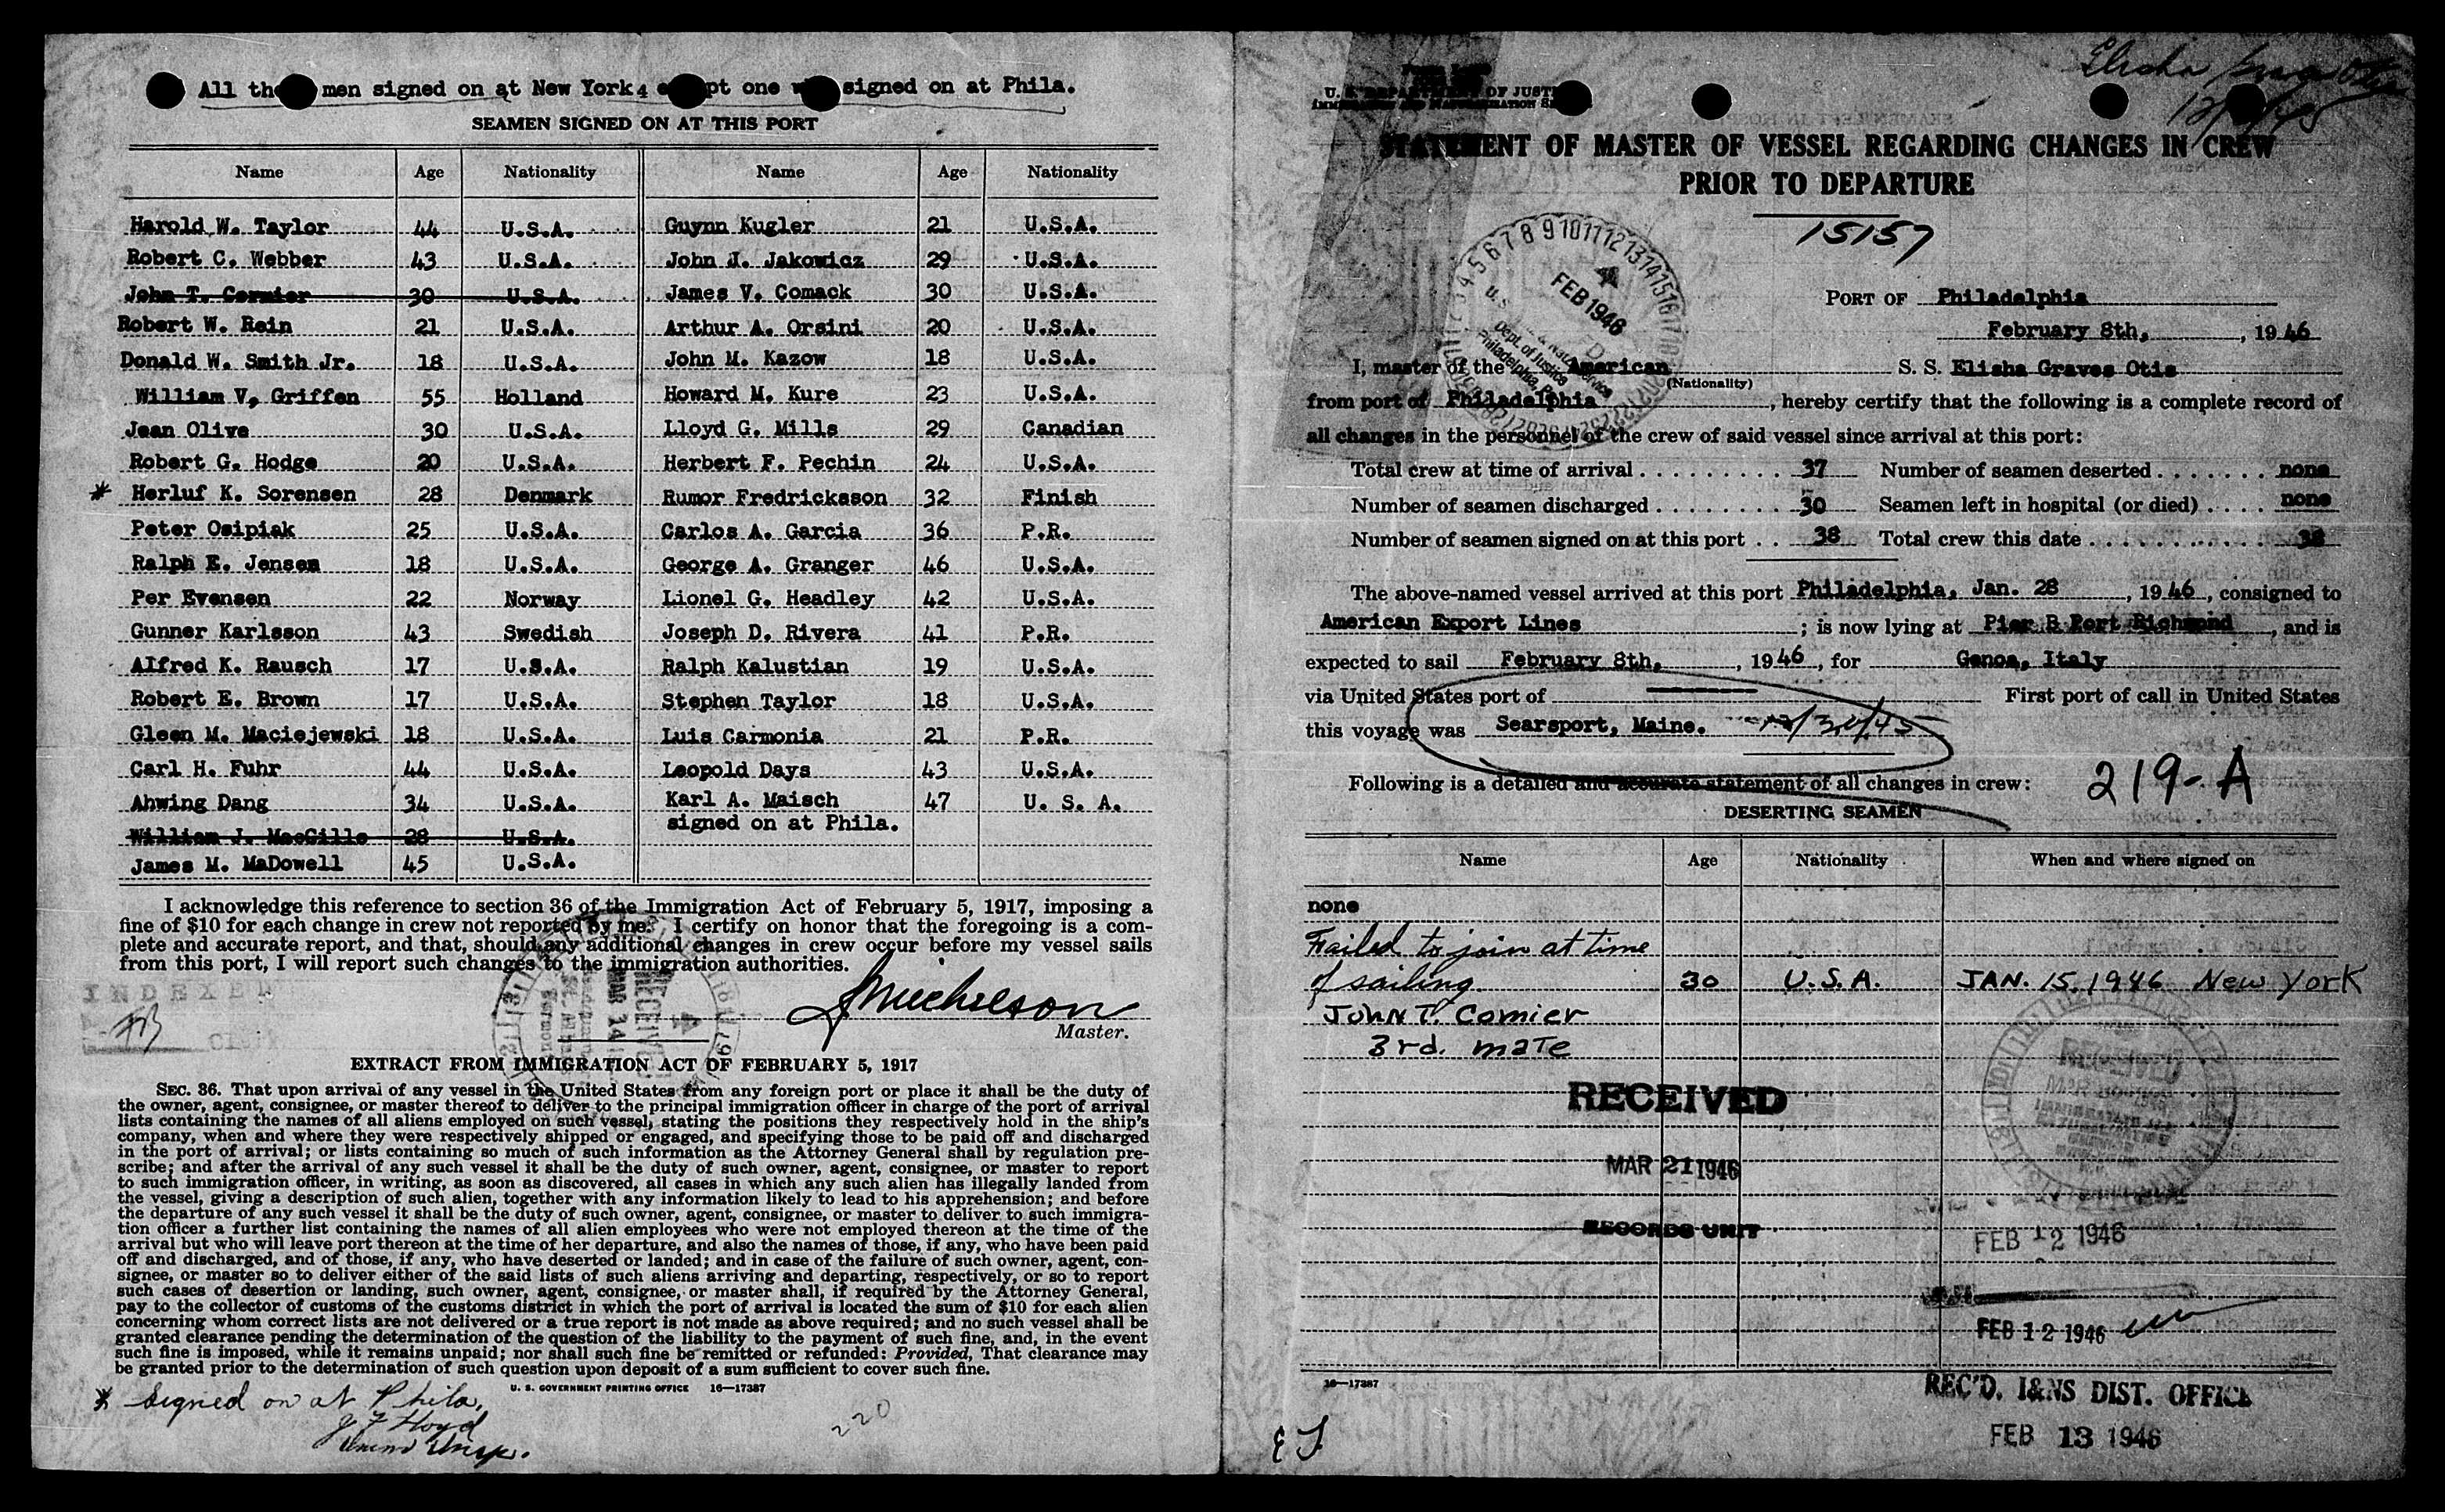 All the men signed on at New York except one who signed on at Phila.
SEAMEN SIGNED ON AT THIS PORT
Name Age Nationality Name Age Nationality
Harold W. Taylor 44 U.S.A. Guynn Kugler 21 U.S.A.
Robert C. Webber 43 U.S.A. John J. Jakowicz 29 U.S.A.
John T. Cormier 30 U.S.A. James V. Comack 30 U.S.A.
Robert W. Rein 21 U.S.A. Arthur A. Orsini 20 U.S.A.
Donald W. Smith Jr. 18 U.S.A. John M. Kazow 18 U.S.A.
William V, Griffen 55 Holland Howard M. Kure 23 U.S.A.
Jean Olive 30 U.S.A. Lloyd G. Mills 29 Canadian
Robert G. Hodge 20 U.S.A. Herbert F. Pechin 24 U.S.A.
* Herluf K. Sorensen 28 Denmark Rumor Fredrickason 32 Finish
Peter Osipiak 25 U.S.A. Carlos A. Garcia 36 P.R.
Ralph E. Jensen 18 U.S.A. George A. Granger 46 U.S.A.
Per Evensen 22 Norway Lionel G. Headley 42 U.S.A.
Gunner Karlsson 43 Swedish Joseph D. Rivera 41 P.R.
Alfred K. Rausch 17 U.S.A. Ralph Kalustian 19 U.S.A.
Robert E. Brown 17 U.S.A. Stephen Taylor 18 U.S.A.
Gleen M. Maciejewski 18 U.S.A. Luis Carmonia 21 P.R.
Carl H. Fuhr 44 U.S.A. Leopold Days 43 U.S.A.
Ahwing Dang 34 U.S.A. Karl A. Maisch 47 U. S. A.
signed on at Phila.
William J. MacGills 28 U.S.A.
James M. MaDowell 45 U.S.A.
I acknowledge this reference to section 36 of the Immigration Act of February 5, 1917, imposing a
fine of $10 for each change in crew not reported by me. I certify on honor that the foregoing is a com-
plete and accurate report, and that, should any additional changes in crew occur before my vessel sails
from this port, I will report such changes to the immigration authorities.
INDEXED
RECEIVED
Master.
EXTRACT FROM IMMIGRATION ACT OF FEBRUARY 5, 1917
SEC. 36. That upon arrival of any vessel in the United States from any foreign port or place it shall be the duty of
the owner, agent, consignee, or master thereof to deliver to the principal immigration officer in charge of the port of arrival
lists containing the names of all aliens employed on such vessel, stating the positions they respectively hold in the ship's
company, when and where they were respectively shipped or engaged, and specifying those to be paid off and discharged
in the port of arrival; or lists containing so much of such information as the Attorney General shall by regulation pre-
scribe; and after the arrival of any such vessel it shall be the duty of such owner, agent, consignee, or master to report
to such immigration officer, in writing, as soon as discovered, all cases in which any such alien has illegally landed from
the vessel, giving a description of such alien, together with any information likely to lead to his apprehension; and before
the departure of any such vessel it shall be the duty of such owner, agent, consignee, or master to deliver to such immigra-
tion officer a further list containing the names of all alien employees who were not employed thereon at the time of the
arrival but who will leave port thereon at the time of her departure, and also the names of those, if any, who have been paid
off and discharged, and of those, if any, who have deserted or landed; and in case of the failure of such owner, agent, con-
signee, or master so to deliver either of the said lists of such aliens arriving and departing, respectively, or so to report
such cases of desertion or landing, such owner, agent, consignee, or master shall, if required by the Attorney General,
pay to the collector of customs of the customs district in which the port of arrival is located the sum of $10 for each alien
concerning whom correct lists are not delivered or a true report is not made as above required; and no such vessel shall be
granted clearance pending the determination of the question of the liability to the payment of such fine, and, in the event
such fine is imposed, while it remains unpaid; nor shall such fine be remitted or refunded: Provided, That clearance may
be granted prior to the determination of such question upon deposit of a sum sufficient to cover such fine.
U. S. GOVERNMENT PRINTING OFFICE 16—17387
* Signed on at Phila.
220
U. S. DEPARTMENT OF JUSTICE
STATEMENT OF MASTER OF VESSEL REGARDING CHANGES IN CREW
PRIOR TO DEPARTURE
15157
FEB 1946
Dept. of Justice
Philadelphia, Pa.
PORT OF Philadelphia
February 8th, , 1946
I, master of the American S. S. Elisha Graves Otis
(Nationality)
from port of Philadelphia , hereby certify that the following is a complete record of
all changes in the personnel of the crew of said vessel since arrival at this port:
Total crew at time of arrival 37 Number of seamen deserted none
Number of seamen discharged 30 Seamen left in hospital (or died) none
Number of seamen signed on at this port 38 Total crew this date 38
The above-named vessel arrived at this port Philadelphia, Jan. 28 , 1946, consigned to
American Export Lines ; is now lying at Pier B Port Richmond , and is
expected to sail February 8th, , 1946, for Genoa, Italy
via United States port of First port of call in United States
this voyage was Searsport, Maine. 12/30/45
Following is a detailed and accurate statement of all changes in crew:
219-A
DESERTING SEAMEN
Name Age Nationality When and where signed on
none
Failed to join at time
of sailing 30 U.S.A. JAN. 15. 1946 New York
JOHN T. Comier
3rd. mate
RECEIVED
MAR 21 1946
RECORDS UNIT
RECEIVED
FEB 12 1946
FEB 12 1946
16—17387
REC'D. I&NS DIST. OFFICE
FEB 13 1946